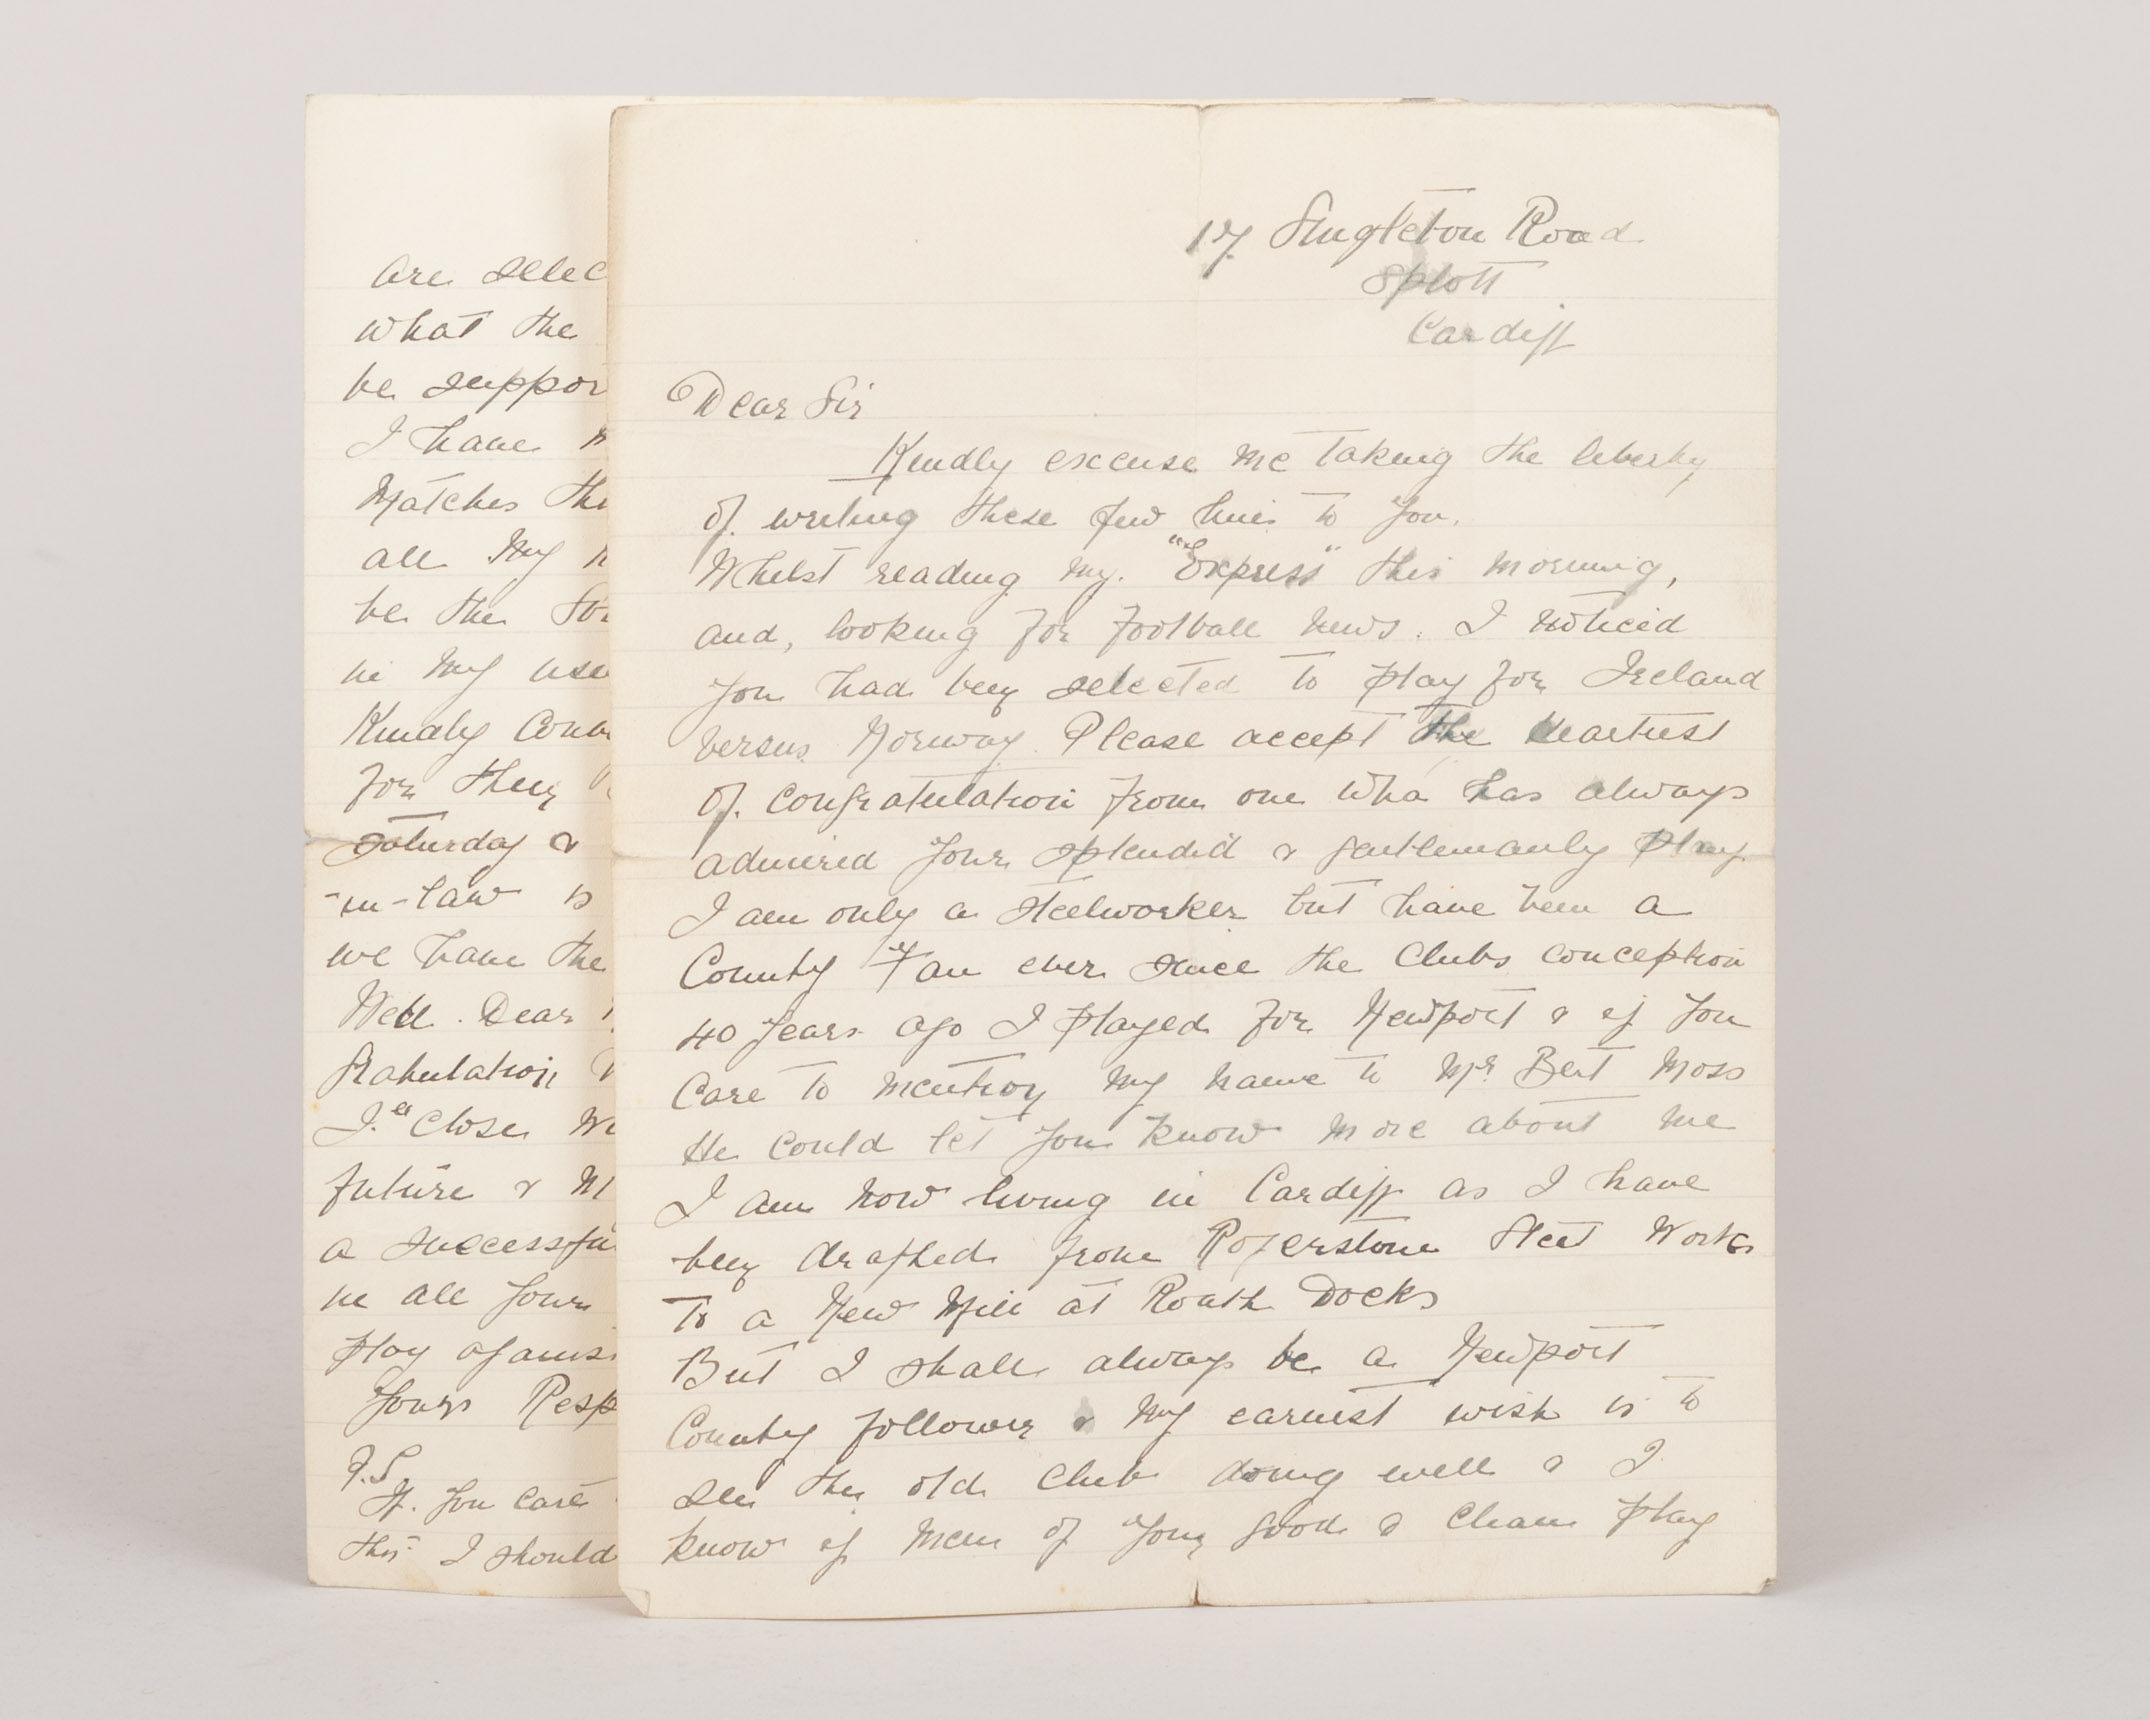 17 Singleton Road
Splott
Cardiff
Dear Sir
Kindly excuse me taking the liberty
of writing these few lines to you.
Whilst reading my. "Express" this morning,
and, looking for football news. I noticed
you had been selected to play for Ireland
versus Norway. Please accept the heartiest
of congratulation from one who has always
admired your splendid & gentlemanly play
I am only a steelworker but have been a
County Fan ever since the clubs conception
40 years ago I played for Newport & if you
care to mention my name to Mr Bert Moss
He could let you know more about me
I am now living in Cardiff as I have
been drafted from Rogerstone Steel Works
To a New Mill at Roath Docks
But I shall always be a Newport
County follower & my earnest wish is to
see the old club doing well & I
know if men of your good & clean play
are selec
what the
be suppor
I have
Matches the
all my
be the
in my use
Kindly
for their
Saturday &
-in-law is
we have the
Well. Dear
gratulation
I'll close
future &
a successfu
in all your
play agains
Yours Resp
P.S
If you care
this I should